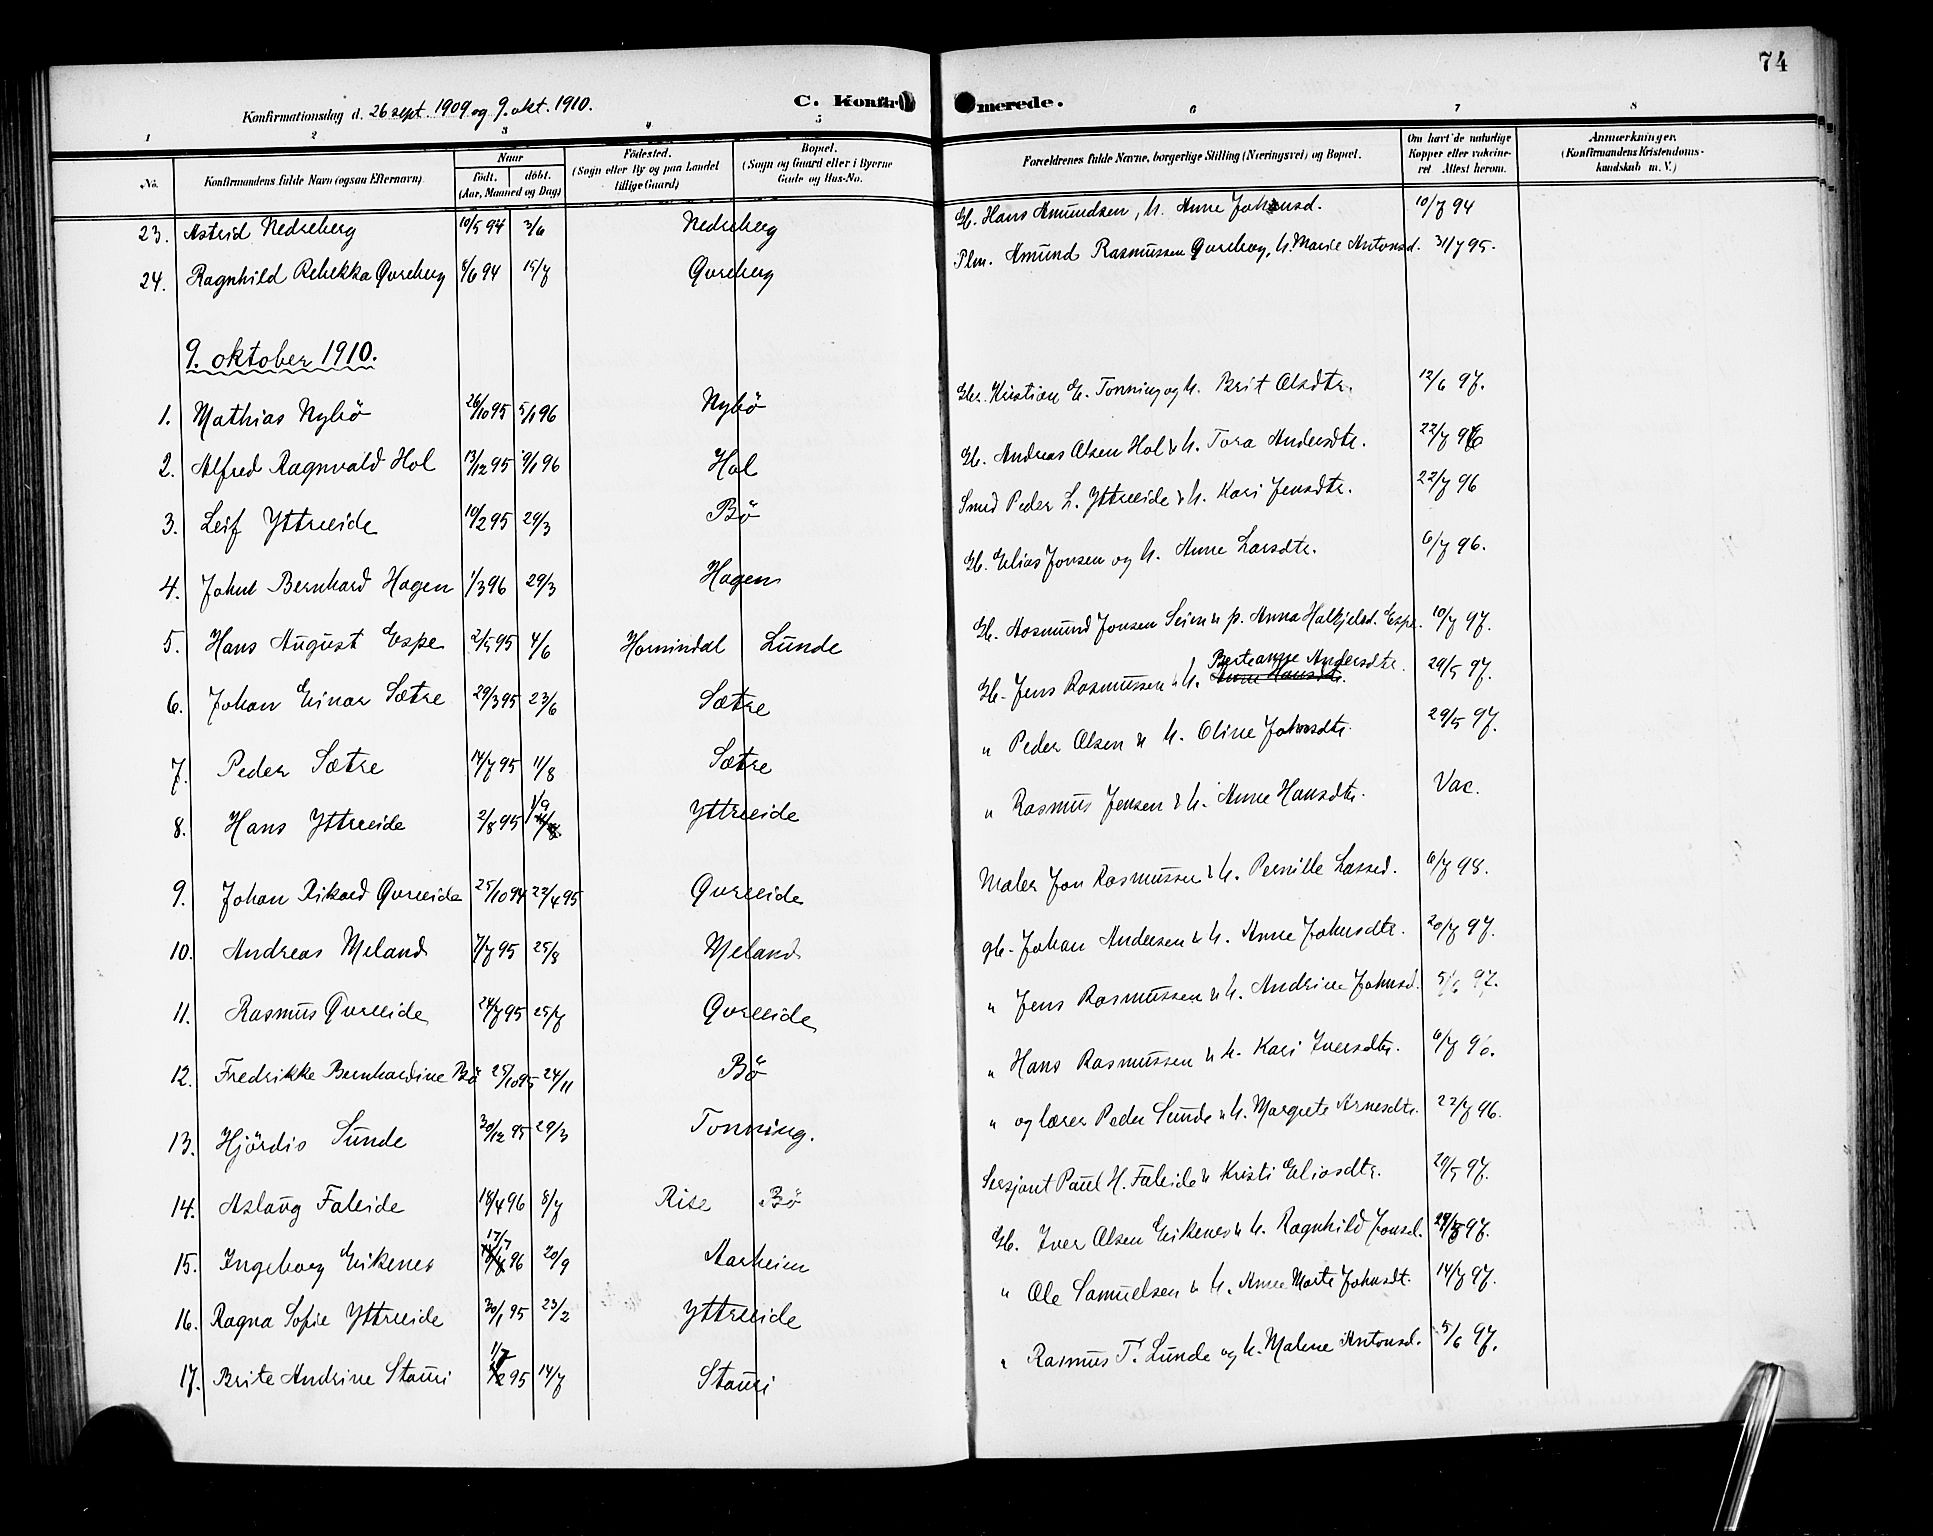 74
Konfirmationsdag d. 26 sept. 1909 og 9. okt. 1910. C. Konfirmerede.
1 2 3 4 5 6 7 8
No. Konfirmandens fulde Navn (ogsaa Efternavn). Naar født. døbt. (Aar, Maaned og Dag) Fødested. (Sogn eller By og paa Landet tillige Gaard) Bopæl. (Sogn og Gaard eller i Byerne Gade og Hus-No. Forældrenes fulde Navne, borgerlige Stilling (Næringsvei) og Bopæl. Om havt de naturlige Kopper eller vakcineret Attest herom. Anmærkninger. (Konfirmandens Kristendomskundskab m. V.)
23. Astrid Nedreberg 10/5 94 3/6 Nedreberg Gb. Hans Amundsen, h. Anne Johnsd. 10/7 94
24. Ragnhild Rebekka Qvreberg 8/6 94 15/7 Qvreberg Plm. Amund Rasmussen Qvreberg, h. Marie Antonsd. 31/7 95.
9. oktober 1910.
1. Mathias Nybö 26/10 95 5/1 96 Nybö Gbr. Kristian E. Tonning og h. Brit Olsdtr. 12/6 97.
2. Alfred Ragnvald Hol 13/12 95 9/1 96 Hol Gb. Andreas Olsen Hol & h. Tora Andersdtr. 22/7 96
3. Leif Yttreeide 10/2 95 29/3 Bö Smed Peder L. Yttreeide & h. Kari Jensdtr. 22/7 96
4. Johne Bernhard Hagen 1/3 96 29/3 Hagen Gb. Elias Jonsen og h. Anne Larsdtr. 6/7 96.
5. Hans August Espe 2/5 95 4/6 Hornindal Lunde Gb. Aasmund Jonsen Seim & p. Anna Halkjelsd. Espe. 10/7 97.
6. Johan Einar Sætre 29/3 95 23/6 Sætre Gb. Jens Rasmussen & h. Berteanne Andersdtr. Anne Hansdtr. 29/5 97.
7. Peder Sætre 14/7 95 11/8 Sætre " Peder Olsen & h. Oline Johnsdtr. 29/5 97.
8. Hans Yttreeide 2/8 95 1/9 Yttreeide " Rasmus Jensen & h. Anne Hansdtr. Vac.
9. Johan Rikard Qvreeide 25/10 94 22/4 95 Qvreeide Maler Jon Rasmussen & h. Pernille Lassed. 6/7 98.
10. Andreas Meland 7/7 95 25/8 Meland gb. Johan Andersen & h. Anne Johnsdtr. 20/7 97.
11. Rasmus Qvreeide 24/7 95 25/7 Qvreeide " Jens Rasmussen & h. Andrine Johnsd. 5/6 97.
12. Fredrikke Bernhardine Bö 25/10 95 24/11 Bö " Hans Rasmussen & h. Kari Iversdtr. 6/7
13. Hjördis Sunde 30/12 95 29/3 Tonning. " og lærer Peder Sunde & h. Margrete Arnesdtr. 22/7 96.
14. Aslaug Faleide 18/4 96 8/7 Rise Bö Sersjant Paul H. Faleide & Kristi Eliasdtr. 20/5 97.
15. Ingeborg Eikenes 17/7 96 20/9 Aarheim Gb. Iver Olsen Eikenes & h. Ragnhild Jonsd. 97.
16. Ragna Sofie Yttreeide 30/1 95 23/2 Yttreeide " Ole Samuelsen & h. Anne Marte Johnsdt. 14/7 97.
17. Brite Andrine Stauri 1/7 95 14/7 Stauri " Rasmus T. Lunde og h. Malene Antonsd. 5/6 97.